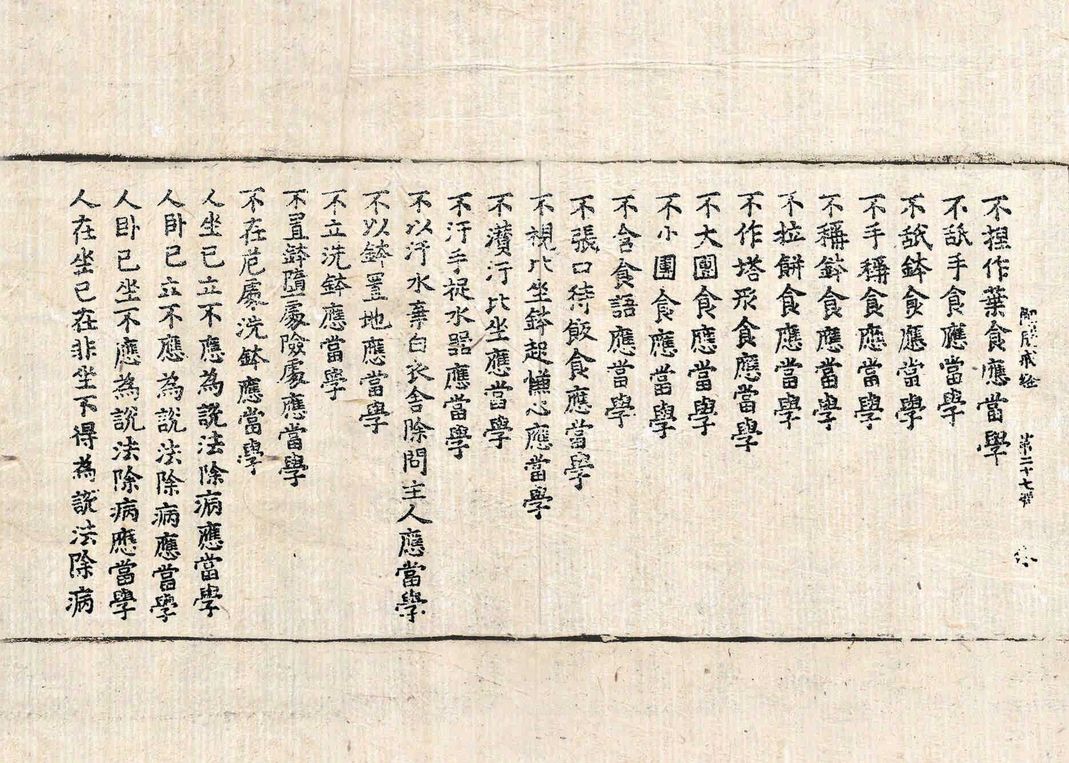 解脫戒經 第二十七張
不揑作葉食應當學
不舐手食應當學
不舐鉢食應當學
不手稱食應當學
不稱鉢食應當學
不拉餅食應當學
不作塔形食應當學
不大團食應當學
不小團食應當學
不含食語應當學
不張口待飯食應當學
不視比坐鉢起慊心應當學
不濽汙比坐應當學
不汙手捉水器應當學
不以汙水棄白衣舍除問主人應當學
不以鉢置地應當學
不立洗鉢應當學
不置鉢墮處險處應當學
不在危處洗鉢應當學
人坐已立不應為說法除病應當學
人卧已立不應為說法除病應當學
人卧已坐不應為說法除病應當學
人在坐已在非坐不得為說法除病